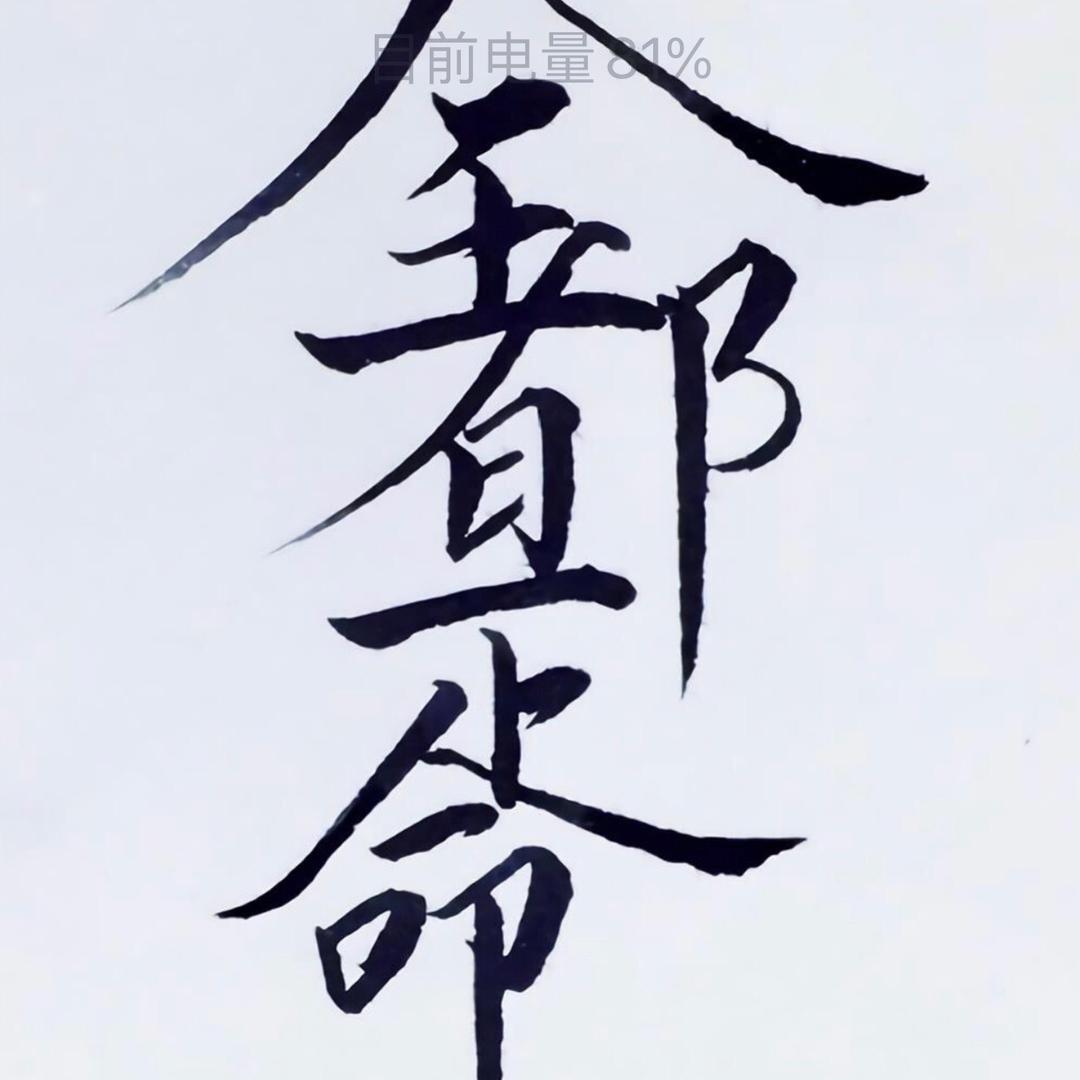 目前电量81%
全
都
是
命